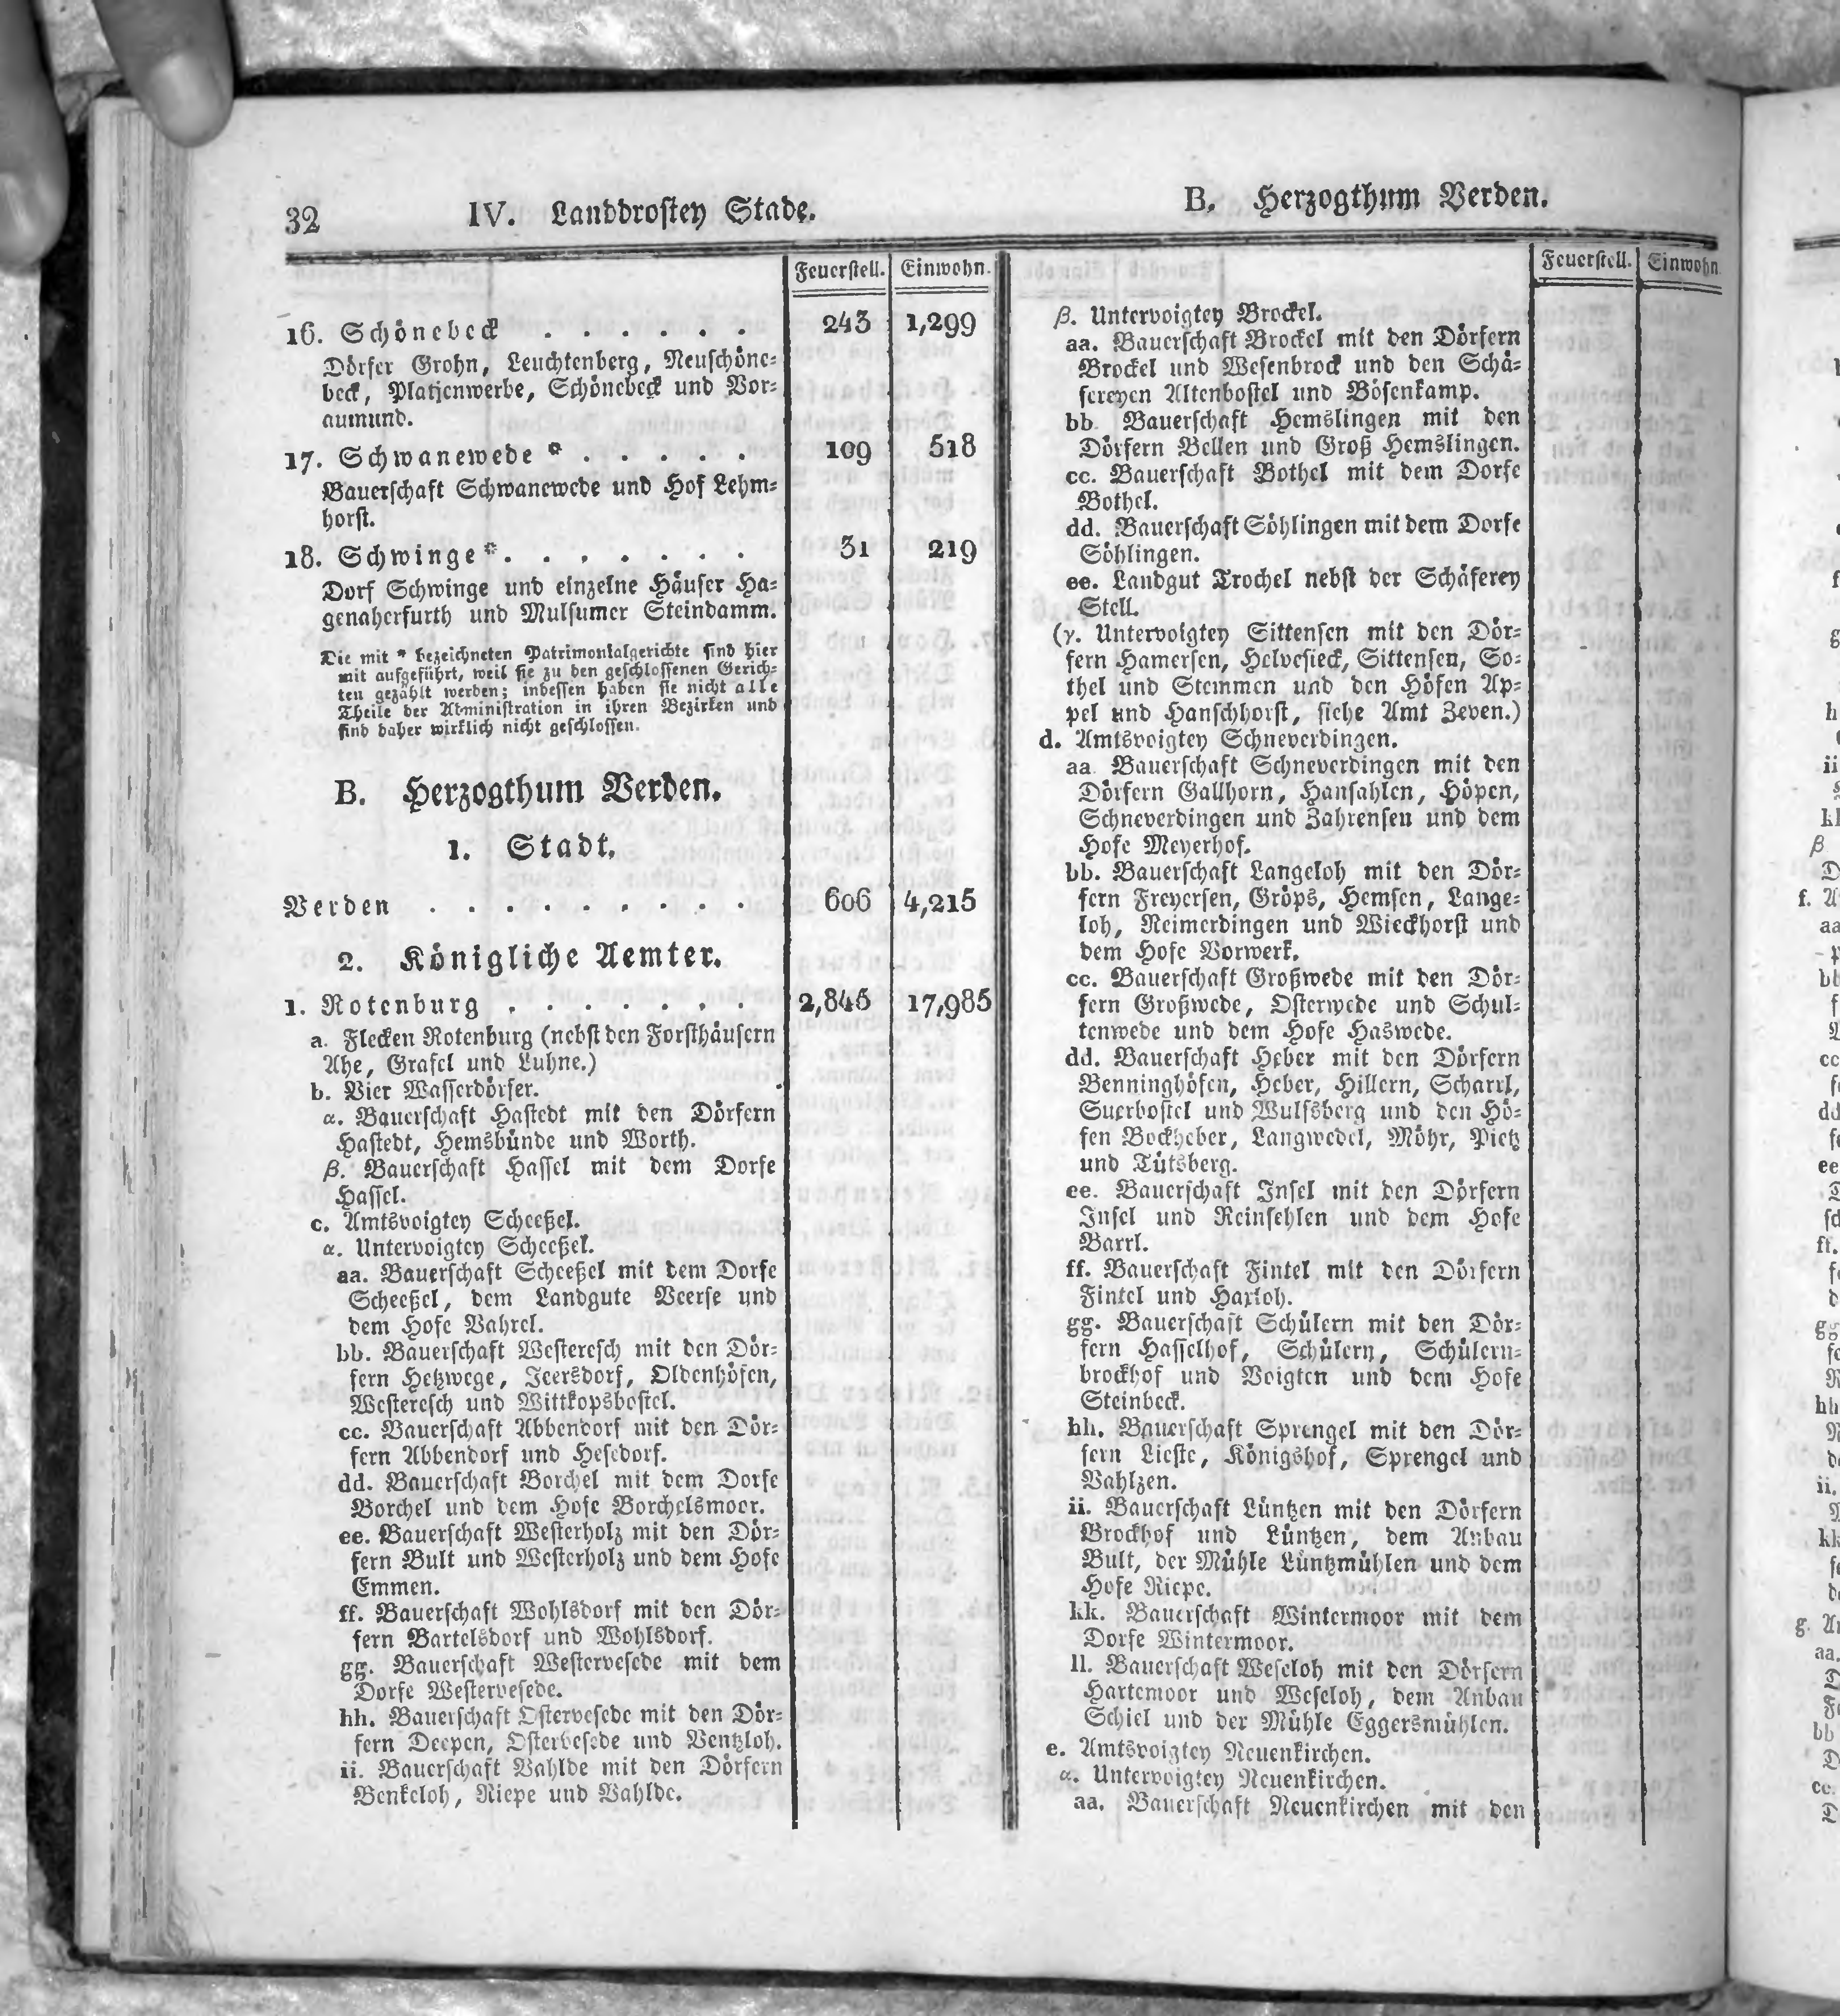 32
IV. Landdrostey Stade.
B. Herzogthum Verden.
Feuerstell. Einwohn.
16. Schönebeck . . . . . . 243 1,299
Dörfer Grohn, Leuchtenberg, Neuschöne-
beck, Platjenwerbe, Schönebeck und Vor-
aumund.
17. Schwanewede * . . . . . 109 518
Bauerschaft Schwanewede und Hof Lehm-
horst.
18. Schwinge *. . . . . . . 31 219
Dorf Schwinge und einzelne Häuser Ha-
genaherfurth und Mulsumer Steindamm.
Die mit * bezeichneten Patrimonialgerichte sind hier
mit aufgeführt, weil sie zu den geschlossenen Gerich-
ten gezählt werden; indessen haben sie nicht alle
Theile der Administration in ihren Bezirken und
sind daher wirklich nicht geschlossen.
B. Herzogthum Verden.
1. Stadt.
Verden . . . . . . . . . 606 4,215
2. Königliche Aemter.
1. Rotenburg . . . . . . . 2,845 17,985
a. Flecken Rotenburg (nebst den Forsthäusern
Ahe, Grafel und Luhne.)
b. Vier Wasserdörfer.
α. Bauerschaft Hastedt mit den Dörfern
Hastedt, Hemsbünde und Worth.
β. Bauerschaft Hassel mit dem Dorfe
Hassel.
c. Amtsvoigtey Scheeßel.
α. Untervoigtey Scheeßel.
aa. Bauerschaft Scheeßel mit dem Dorfe
Scheeßel, dem Landgute Veerse und
dem Hofe Vahrel.
bb. Bauerschaft Westeresch mit den Dör-
fern Hetzwege, Jeersdorf, Oldenhöfen,
Westeresch und Wittkopsbostel.
cc. Bauerschaft Abbendorf mit den Dör-
fern Abbendorf und Hesedorf.
dd. Bauerschaft Borchel mit dem Dorfe
Borchel und dem Hofe Borchelsmoor.
ee. Bauerschaft Westerholz mit den Dör-
fern Bult und Westerholz und dem Hofe
Emmen.
ff. Bauerschaft Wohlsdorf mit den Dör-
fern Bartelsdorf und Wohlsdorf.
gg. Bauerschaft Westervesede mit dem
Dorfe Westervesede.
hh. Bauerschaft Ostervesede mit den Dör-
fern Deepen, Ostervesede und Ventzloh.
ii. Bauerschaft Vahlde mit den Dörfern
Benkeloh, Riepe und Vahlde.
Feuerstell. Einwohn
β. Untervoigtey Brockel.
aa. Bauerschaft Brockel mit den Dörfern
Brockel und Wesenbrock und den Schä-
fereyen Altenbostel und Bösenkamp.
bb. Bauerschaft Hemslingen mit den
Dörfern Bellen und Groß Hemslingen.
cc. Bauerschaft Bothel mit dem Dorfe
Bothel.
dd. Bauerschaft Söhlingen mit dem Dorfe
Söhlingen.
ee. Landgut Trochel nebst der Schäferey
Stell.
(γ. Untervoigtey Sittensen mit den Dör-
fern Hamersen, Helvesieck, Sittensen, So-
thel und Stemmen und den Höfen Ap-
pel und Hanschhorst, siehe Amt Zeven.)
d. Amtsvoigtey Schneverdingen.
aa. Bauerschaft Schneverdingen mit den
Dörfern Gallhorn, Hansahlen, Höpen,
Schneverdingen und Zahrensen und dem
Hofe Meyerhof.
bb. Bauerschaft Langeloh mit den Dör-
fern Freyersen, Gröps, Hemsen, Lange-
loh, Reimerdingen und Wieckhorst und
dem Hofe Vorwerk.
cc. Bauerschaft Großwede mit den Dör-
fern Großwede, Osterwede und Schul-
tenwede und dem Hofe Haswede.
dd. Bauerschaft Heber mit den Dörfern
Benninghöfen, Heber, Hillern, Scharrl,
Suerbostel und Wulfsberg und den Hö-
fen Bockheber, Langwedel, Möhr, Pietz
und Tütsberg.
ee. Bauerschaft Insel mit den Dörfern
Insel und Reinsehlen und dem Hofe
Barrl.
ff. Bauerschaft Fintel mit den Dörfern
Fintel und Haxloh.
gg. Bauerschaft Schülern mit den Dör-
fern Hasselhof, Schülern, Schülern-
brockhof und Voigten und dem Hofe
Steinbeck.
hh. Bauerschaft Sprengel mit den Dör-
fern Lieste, Königshof, Sprengel und
Vahlzen.
ii. Bauerschaft Lüntzen mit den Dörfern
Brockhof und Lüntzen, dem Anbau
Bult, der Mühle Lüntzmühlen und dem
Hofe Riepe.
kk. Bauerschaft Wintermoor mit dem
Dorfe Wintermoor.
ll. Bauerschaft Weseloh mit den Dörfern
Hartemoor und Weseloh, dem Anbau
Schiel und der Mühle Eggersmühlen.
e. Amtsvoigtey Neuenkirchen.
α. Untervoigtey Neuenkirchen.
aa. Bauerschaft Neuenkirchen mit den